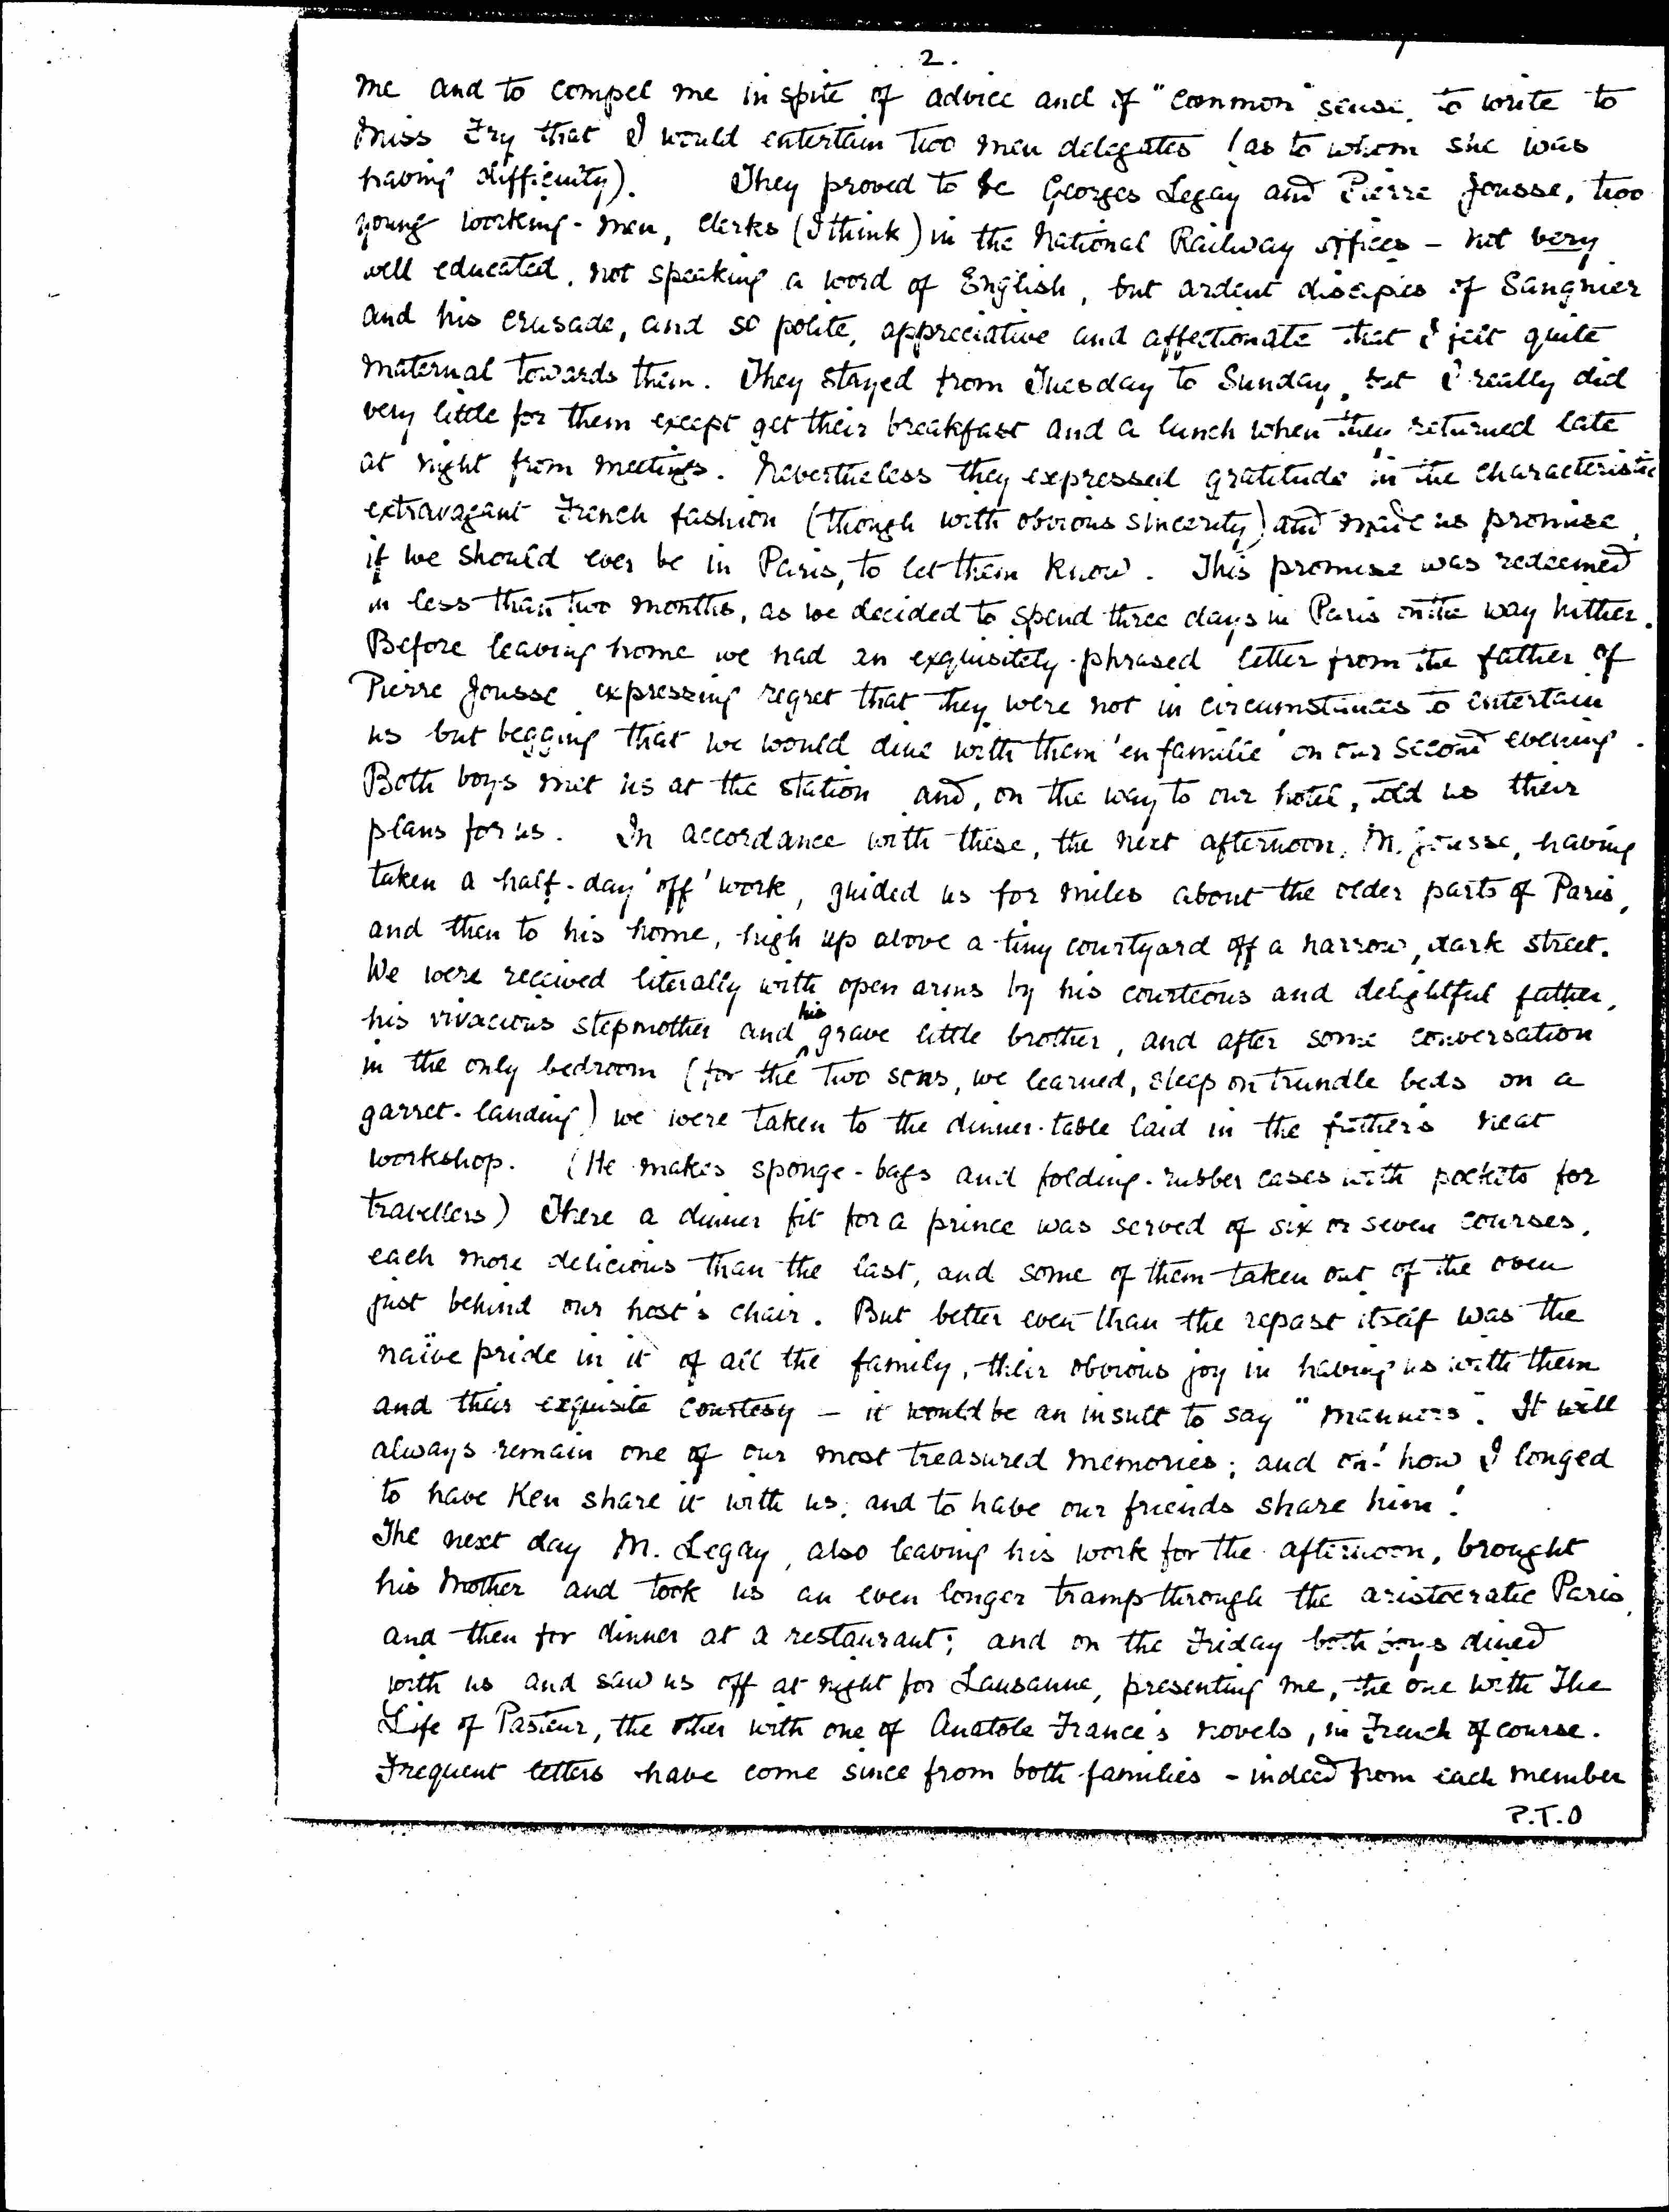 2.
me and to compel me in spite of advice and of "common" sense, to write to
Miss Fry that I would entertain two men delegates (as to whom she was
having difficulty). They proved to be Georges Legay and Pierre Jousse, two
young working-men, clerks (I think) in the National Railway offices - not very
well educated, not speaking a word of English, but ardent disciples of Sangnier
and his crusade, and so polite, appreciative and affectionate that I felt quite
maternal towards them. They stayed from Tuesday to Sunday, but I really did
very little for them except get their breakfast and a lunch when they returned late
at night from meetings. Nevertheless they expressed gratitude in the characteristic
extravagant French fashion (though with obvious sincerity) and made us promise,
if we should ever be in Paris, to let them know. This promise was redeemed
in less than two months, as we decided to spend three days in Paris on the way hither.
Before leaving home we had an exquisitely-phrased letter from the father of
Pierre Jousse expressing regret that they were not in circumstances to entertain
us but begging that we would dine with them 'en famille' on our second evening.
Both boys met us at the station and, on the way to our hotel, told us their
plans for us. In accordance with these, the next afternoon, M. Jousse, having
taken a half-day 'off' work, guided us for miles about the older parts of Paris,
and then to his home, high up above a tiny courtyard off a narrow, dark street.
We were received literally with open arms by his courteous and delightful father,
his vivacious stepmother and his grave little brother, and after some conversation
in the only bedroom (for the two sons, we learned, sleep on trundle beds on a
garret-landing) we were taken to the dinner-table laid in the father's neat
workshop. (He makes sponge-bags and folding-rubber cases with pockets for
travellers) There a dinner fit for a prince was served of six or seven courses,
each more delicious than the last, and some of them taken out of the oven
just behind our host's chair. But better even than the repast itself was the
naïve pride in it of all the family, their obvious joy in having us with them
and their exquisite courtesy - it would be an insult to say "manners". It will
always remain one of our most treasured memories; and oh! how I longed
to have Ken share it with us, and to have our friends share him!
The next day M. Legay, also leaving his work for the afternoon, brought
his mother and took us an even longer tramp through the aristocratic Paris,
and then for dinner at a restaurant; and on the Friday both boys dined
with us and saw us off at night for Lausanne, presenting me, the one with The
Life of Pasteur, the other with one of Anatole France's novels, in French of course.
Frequent letters have come since from both families - indeed from each member
P.T.O